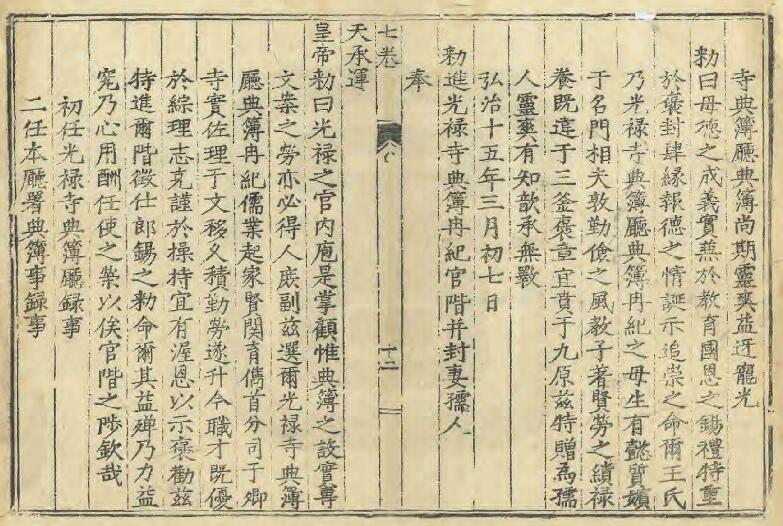 寺典簿廳典簿尚期靈爽益迓寵光
勑曰母德之成義實兼於教育國恩之錫禮特重
於襃封肆緣報德之情誕示追崇之命爾王氏
乃光禄寺典簿廳典簿冉紀之母生有懿質嬪
于名門相夫敦勤儉之風教子著賢勞之績禄
養既違于三釜襃章宜賁于九原兹特贈為孺
人靈爽有知歆承無斁
弘治十五年三月初七日
勑進光禄寺典簿冉紀官階并封妻孺人
奉
七卷
十二
天承運
皇帝勑曰光禄之官内庖是掌顧惟典簿之設實專
文案之勞亦必得人庶副兹選爾光禄寺典簿
廳典簿冉紀儒業起家賢関育儁首分司于卿
寺實佐理于文移久積勤勞遂升今職才既優
於綜理志克謹於操持宜有渥恩以示襃勸兹
特進爾階徵仕郎錫之勑命爾其益殫乃力益
究乃心用酬任使之榮以俟官階之陟欽哉
初任光禄寺典簿廳録事
二任本廳署典簿事録事